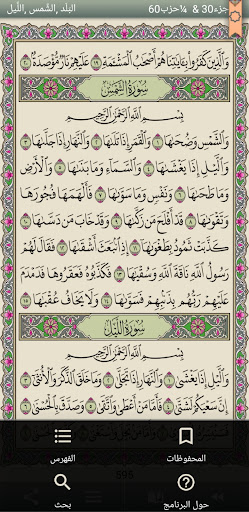 جزء30 & ¼حزب60
البلد ,الشمس ,الليل
وَالَّذِينَ كَفَرُوا بِآيَاتِنَا هُمْ أَصْحَابُ الْمَشْأَمَةِ ١٩ عَلَيْهِمْ نَارٌ مُؤْصَدَةٌ ٢٠
سُورَةُ الشَّمْسِ
بِسْمِ اللَّهِ الرَّحْمَٰنِ الرَّحِيمِ
وَالشَّمْسِ وَضُحَىٰهَا ١ وَالْقَمَرِ إِذَا تَلَىٰهَا ٢ وَالنَّهَارِ إِذَا جَلَّىٰهَا ٣
وَاللَّيْلِ إِذَا يَغْشَىٰهَا ٤ وَالسَّمَاءِ وَمَا بَنَىٰهَا ٥ وَالْأَرْضِ
وَمَا طَحَىٰهَا ٦ وَنَفْسٍ وَمَا سَوَّىٰهَا ٧ فَأَلْهَمَهَا فُجُورَهَا
وَتَقْوَىٰهَا ٨ قَدْ أَفْلَحَ مَنْ زَكَّىٰهَا ٩ وَقَدْ خَابَ مَنْ دَسَّىٰهَا ١٠
كَذَّبَتْ ثَمُودُ بِطَغْوَىٰهَا ١١ إِذِ انْبَعَثَ أَشْقَىٰهَا ١٢ فَقَالَ لَهُمْ
رَسُولُ اللَّهِ نَاقَةَ اللَّهِ وَسُقْيَىٰهَا ١٣ فَكَذَّبُوهُ فَعَقَرُوهَا فَدَمْدَمَ
عَلَيْهِمْ رَبُّهُمْ بِذَنْبِهِمْ فَسَوَّىٰهَا ١٤ وَلَا يَخَافُ عُقْبَىٰهَا ١٥
سُورَةُ اللَّيْلِ
بِسْمِ اللَّهِ الرَّحْمَٰنِ الرَّحِيمِ
وَاللَّيْلِ إِذَا يَغْشَىٰ ١ وَالنَّهَارِ إِذَا تَجَلَّىٰ ٢ وَمَا خَلَقَ الذَّكَرَ وَالْأُنْثَىٰ ٣
إِنَّ سَعْيَكُمْ لَشَتَّىٰ ٤ فَأَمَّا مَنْ أَعْطَىٰ وَاتَّقَىٰ ٥ وَصَدَّقَ بِالْحُسْنَىٰ ٦
المحفوظات
الفهرس
595
حول البرنامج
بحث